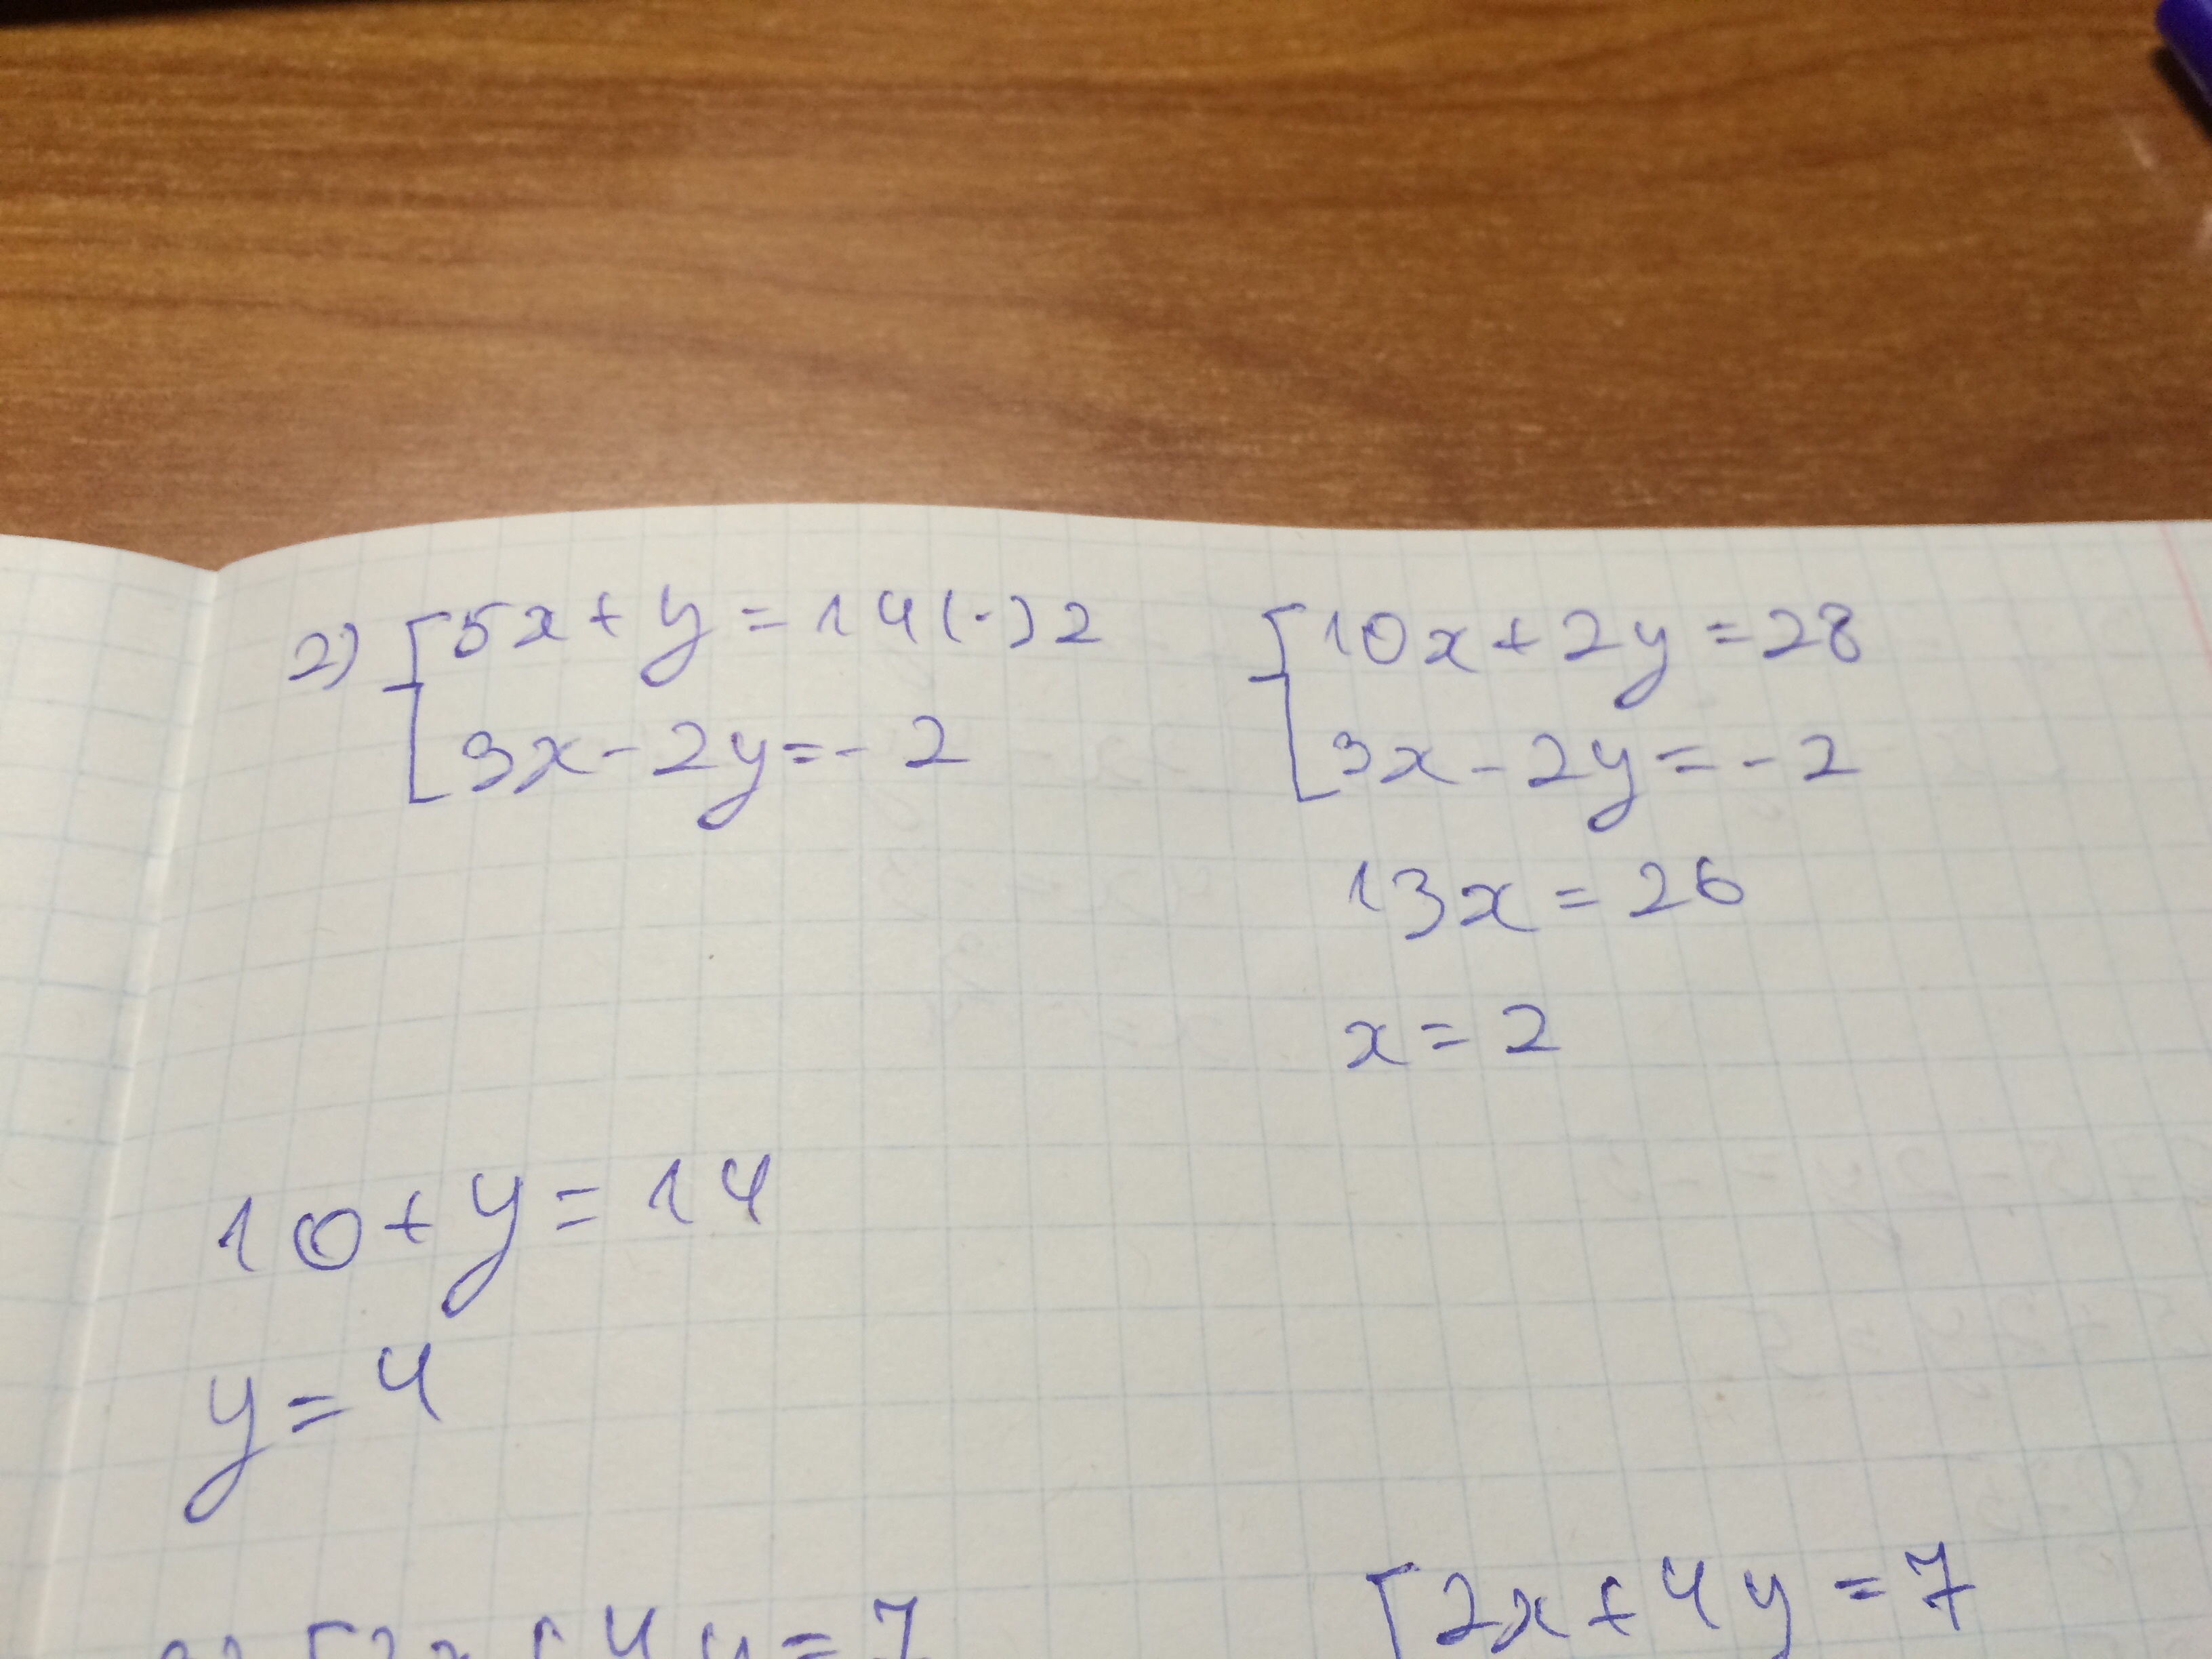 2) { 5x + y = 14 (·) 2
3x - 2y = - 2
{ 10x + 2y = 28
3x - 2y = - 2
13x = 26
x = 2
10 + y = 14
y = 4
{ 2x + 4y = 7